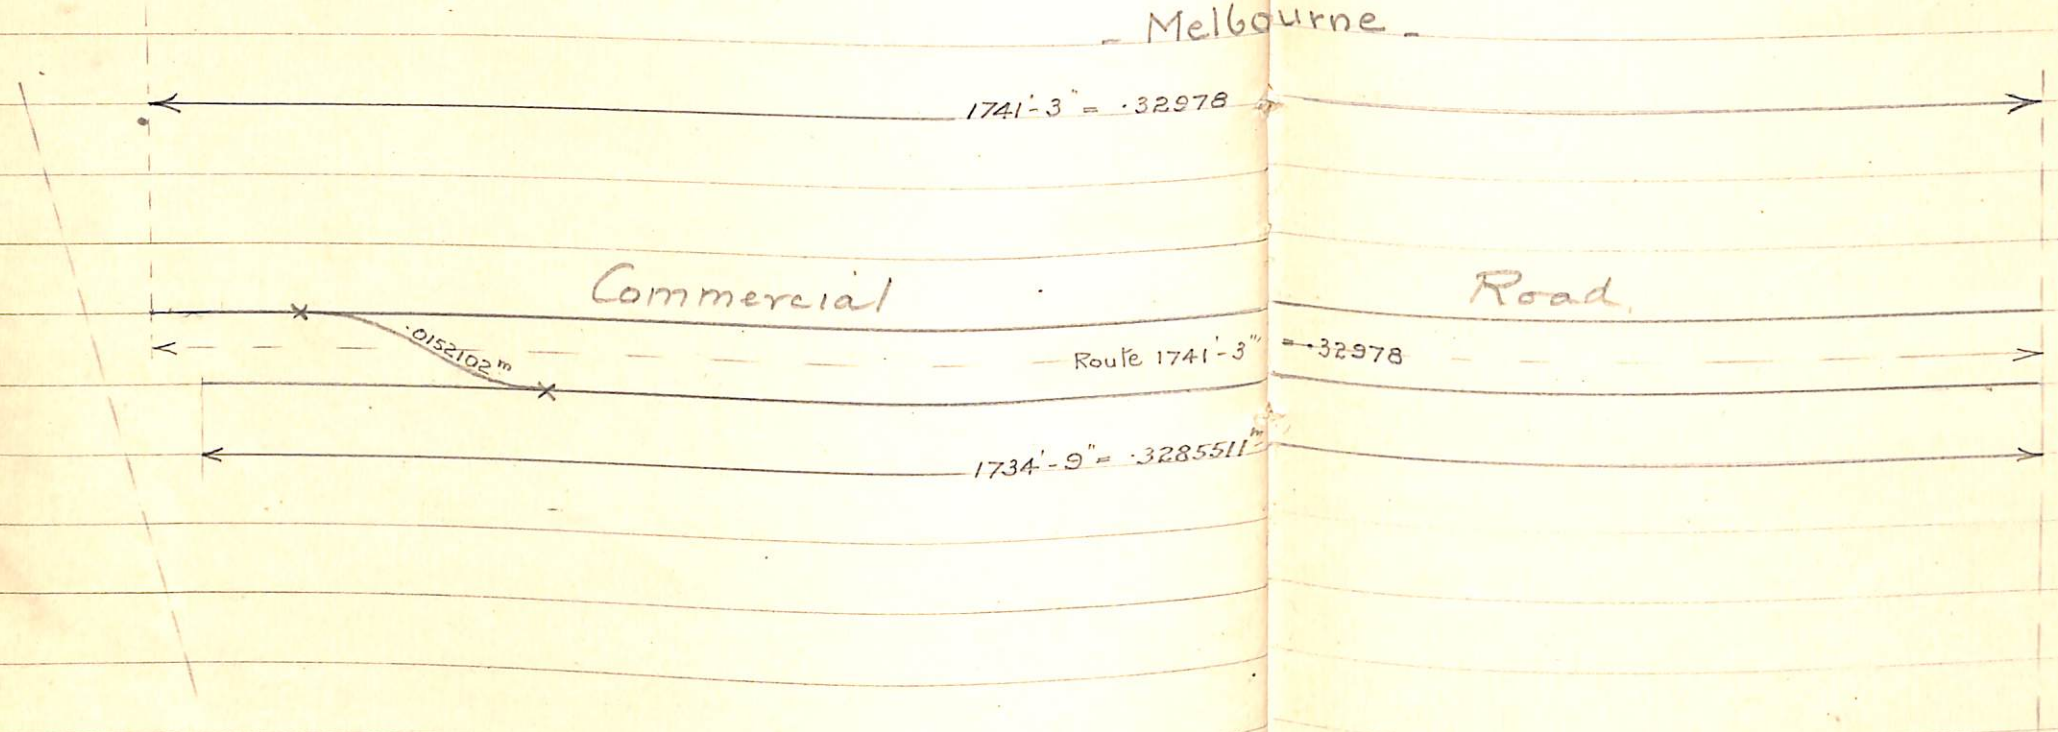 - Melbourne -
1741'-3" = .32978
Commercial Road.
.0152102 m
Route 1741'-3" = .32978
1734'-9" = .3285511 m